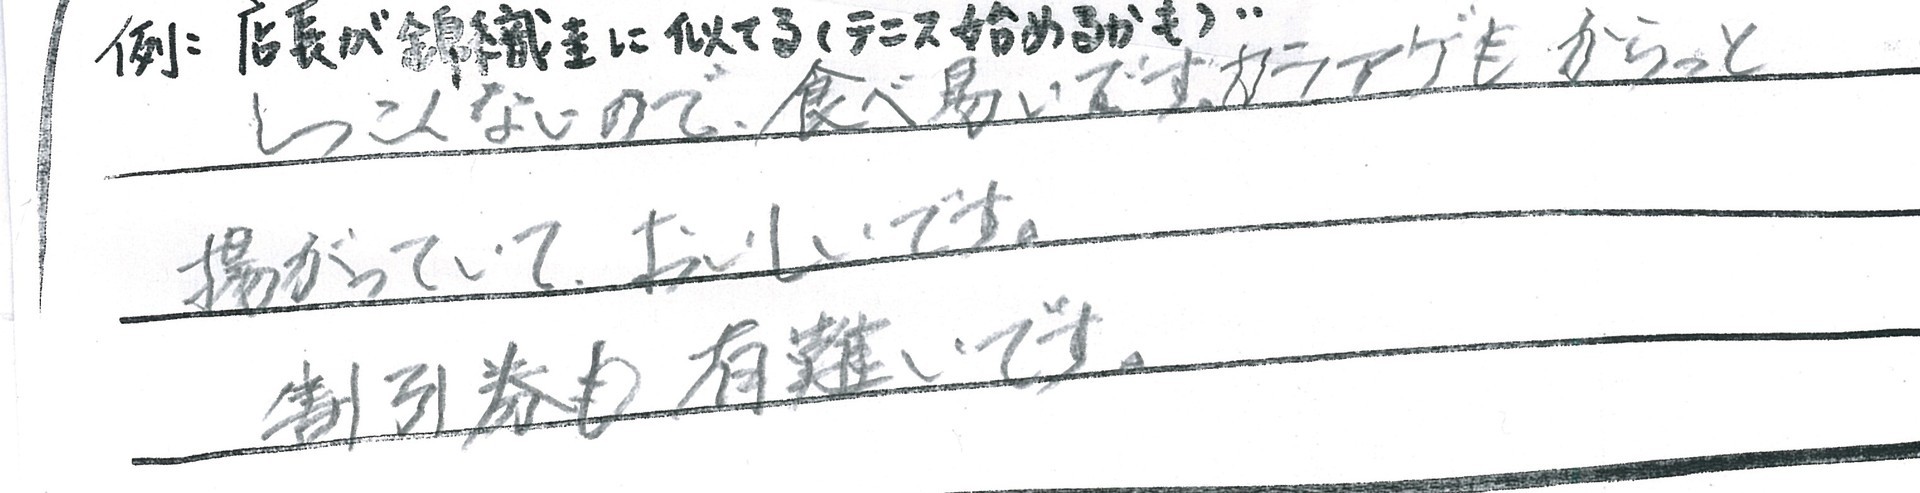 例: 店長が錦織圭に似てる(テニス始めるかも)‥
しつこくないので、食べ易いです。カラアゲもからっと
揚がっていて、おいしいです。
割引券も有難いです。